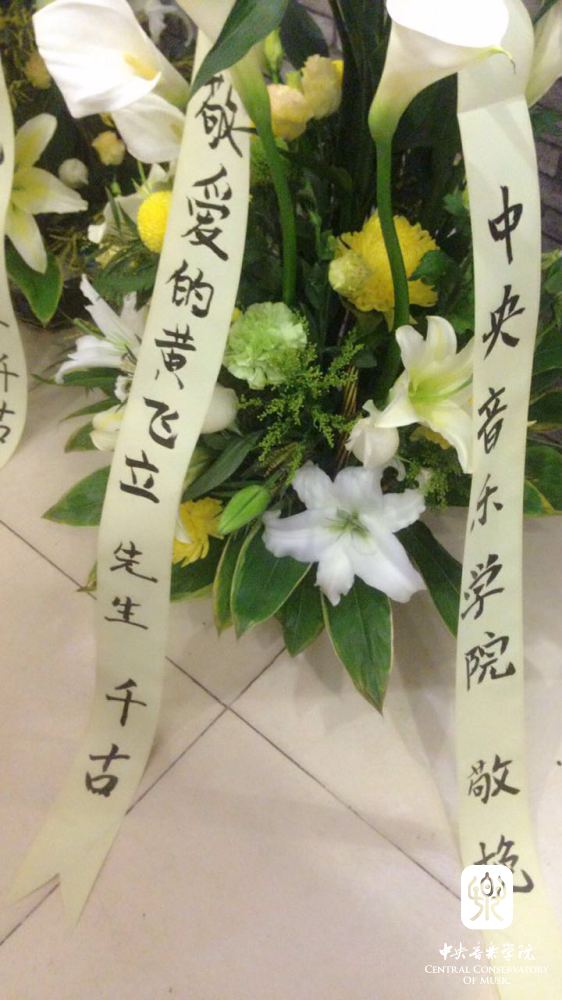 敬爱的黄飞立先生千古
中央音乐学院 敬挽
千古
中央音乐学院
CENTRAL CONSERVATORY
OF MUSIC